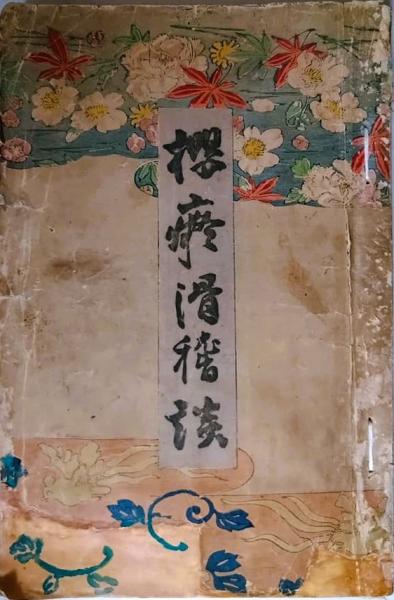 櫻癡滑稽談